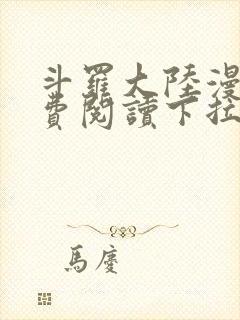 斗羅大陸漫
費閱讀下拉
馬慶